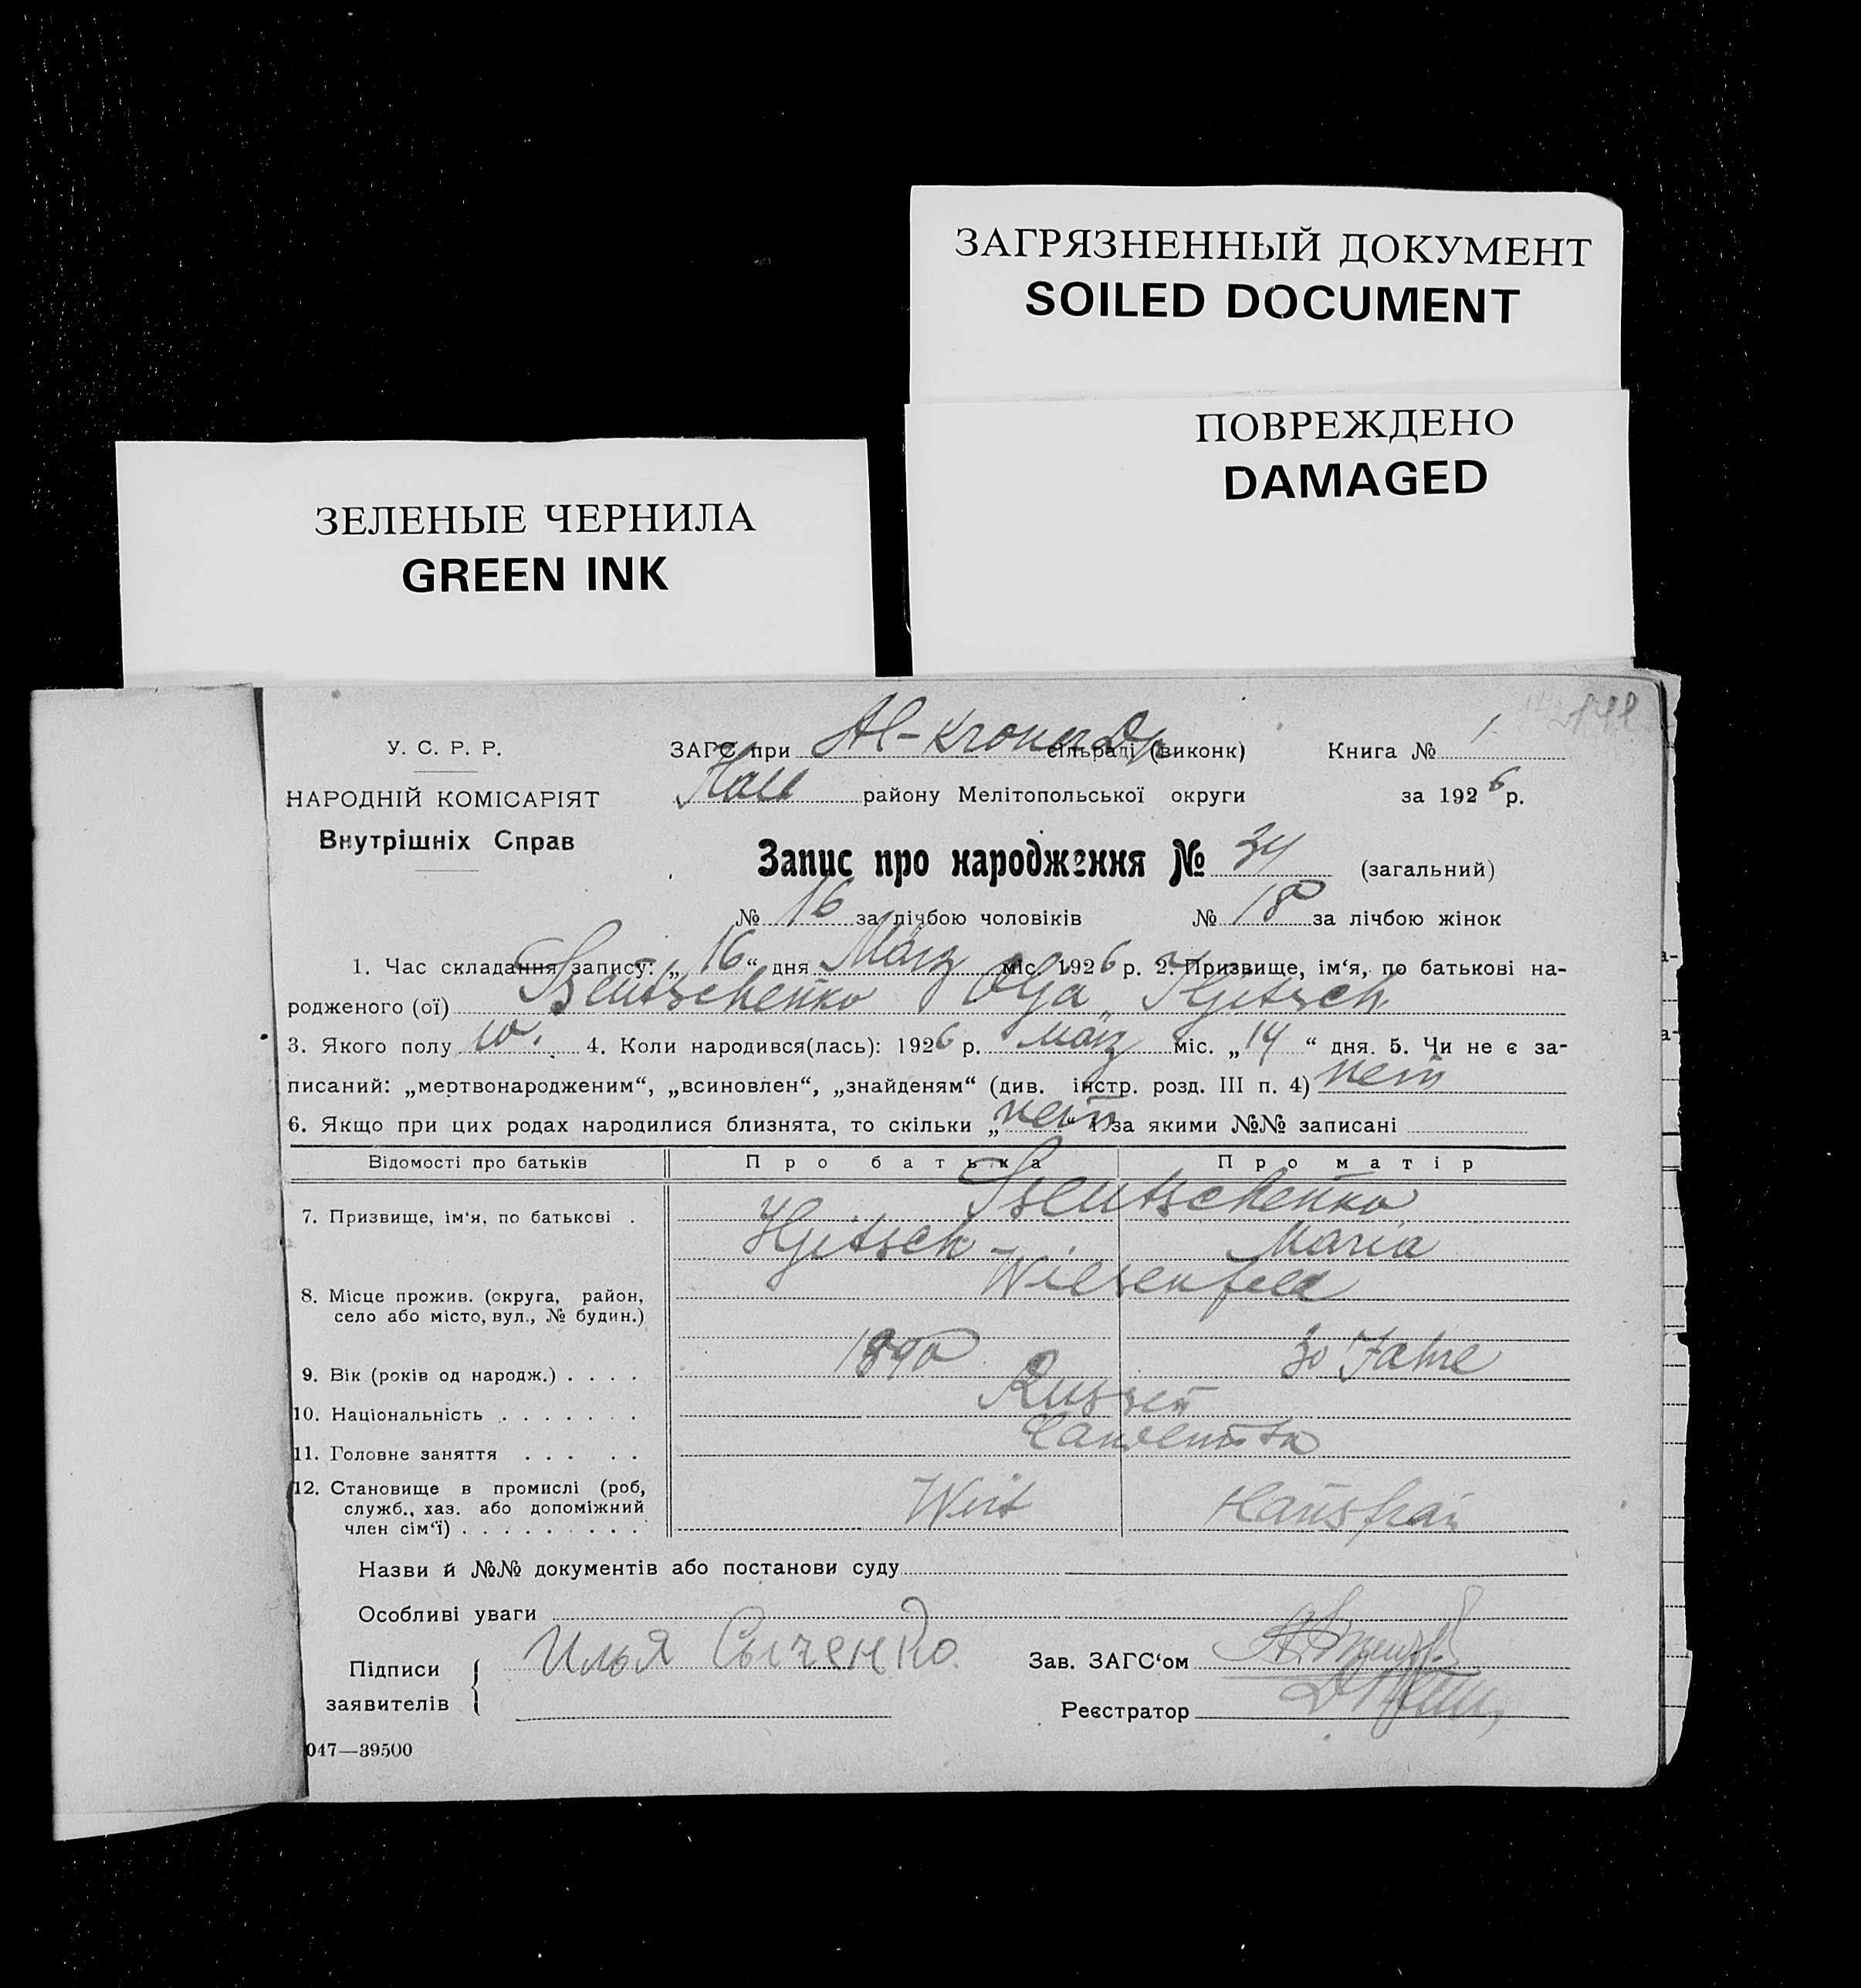 ЗАГРЯЗНЕННЫЙ ДОКУМЕНТ
SOILED DOCUMENT
ПОВРЕЖДЕНО
DAMAGED
ЗЕЛЕНЫЕ ЧЕРНИЛА
GREEN INK
У. С. Р. Р.
НАРОДНІЙ КОМІСАРІЯТ
Внутрішніх Справ
ЗАГС при Al-Kroner Df сільраді (виконк) Книга № 1.
Halb району Мелітопольської округи за 1926 р.
Запис про народження № 34 (загальний)
№ 16 за лічбою чоловіків № 18 за лічбою жінок
1. Час складання запису: „ 16 “ дня März міс. 1926 р. 2. Призвище, ім‘я, по батькові на-
родженого (ої) Sseutschenko Olja Iljitsch
3. Якого полу w. 4. Коли народився(лась): 1926 р. März міс. „ 14 “ дня. 5. Чи не є за-
писаний: „мертвонародженим“, „всиновлен“, „знайденям“ (див. інстр. розд. III п. 4) nein
6. Якщо при цих родах народилися близнята, то скільки „ nein “ і за якими №№ записані
Відомості про батьків Про батька Про матір
7. Призвище, ім‘я, по батькові . Sseutschenko
Iljitsch Maria
8. Місце прожив. (округа, район,
село або місто, вул., № будин.)
Wiesenfeld
9. Вік (років од народж.) . . . . 1890 30 Jahre
10. Національність . . . . . . . Russen
11. Головне заняття . . . . .
12. Становище в промислі (роб,
служб., хаз. або допоміжний
член сім‘ї) . . . . . . . . . Wirt Hausfrau
Назви й №№ документів або постанови суду
Особливі уваги
Підписи
заявителів
Илья Сыченко.
Зав. ЗАГС‘ом
Реєстратор
047—39500